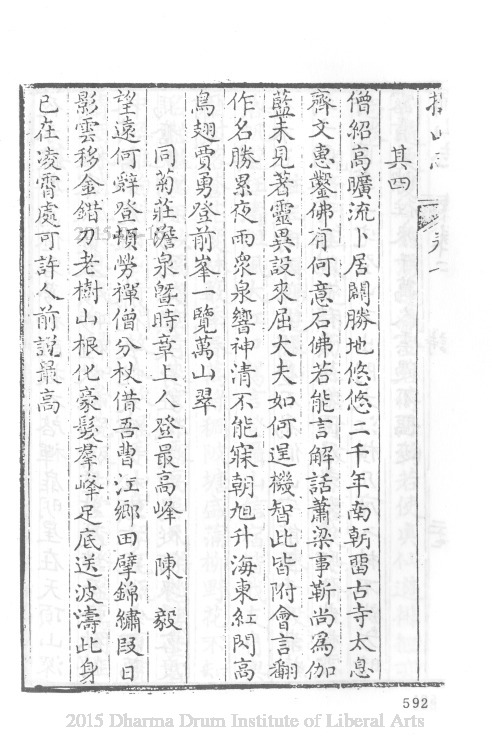 攝山志 卷十
其四
僧紹高曠流卜居闢勝地悠悠二千年南朝畱古寺太息
齊文惠鑿佛有何意石佛若能言解話蕭梁事靳尚爲伽
藍未見著靈異設來屈大夫如何逞機智此皆附會言翻
作名勝累夜雨衆泉響神清不能寐朝旭升海東紅閃高
鳥翅賈勇登前峯一覽萬山翠
同菊莊澹泉曁時章上人登最高峰 陳毅
望遠何辤登頓勞禪僧分杖借吾曹江鄉田擘錦繡段日
影雲移金錯刀老樹山根化豪髮羣峰足底送波濤此身
已在凌霄處可許人前説最高
592
2015 Dharma Drum Institute of Liberal Arts